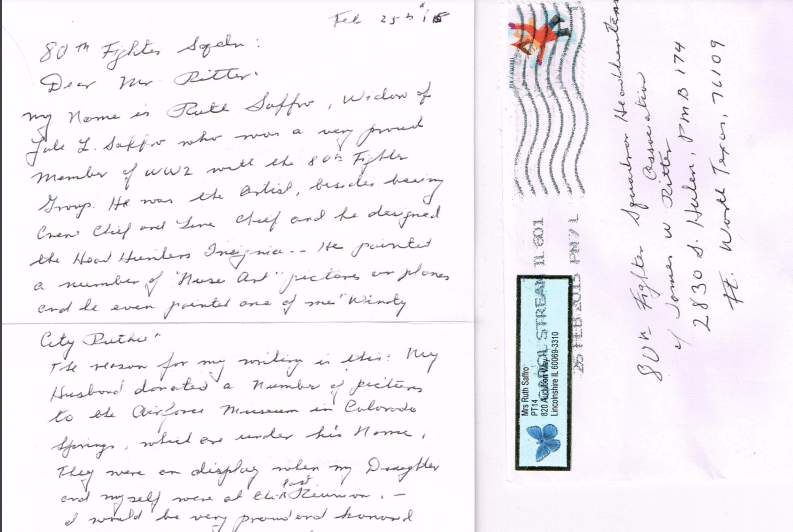 Feb 25th '15
80th Fighter Sqdn:
Dear Mr. Ritter.
My Name is Ruth Saffro, Widow of
Yale L. Saffro who was a very proud
Member of WW2 with the 80th Fighter
Group. He was the Artist, besides being
Crew Chief and Line Chief and he designed
the Head Hunters Insignia -- He painted
a number of "Nose Art" pictures on planes
and he even painted one of me "Windy
City Ruthie"
The reason for my writing is this: My
Husband donated a Number of pictures
to the Airforce Museum in Colorado
Springs, which are under his Name.
They were on display when my Daughter
and myself were at the last Reunion. -
I would be very proud and honored
CAROL STREAM IL 601
25 FEB 2015 PM 7 L
Mrs Ruth Saffro
PT14
Lincolnshire IL 60069-3310
80th Fighter Squadron Headhunters
Association
c/o James W Ritter
2830 S. Hulen, PMB 174
Ft. Worth Texas, 76109